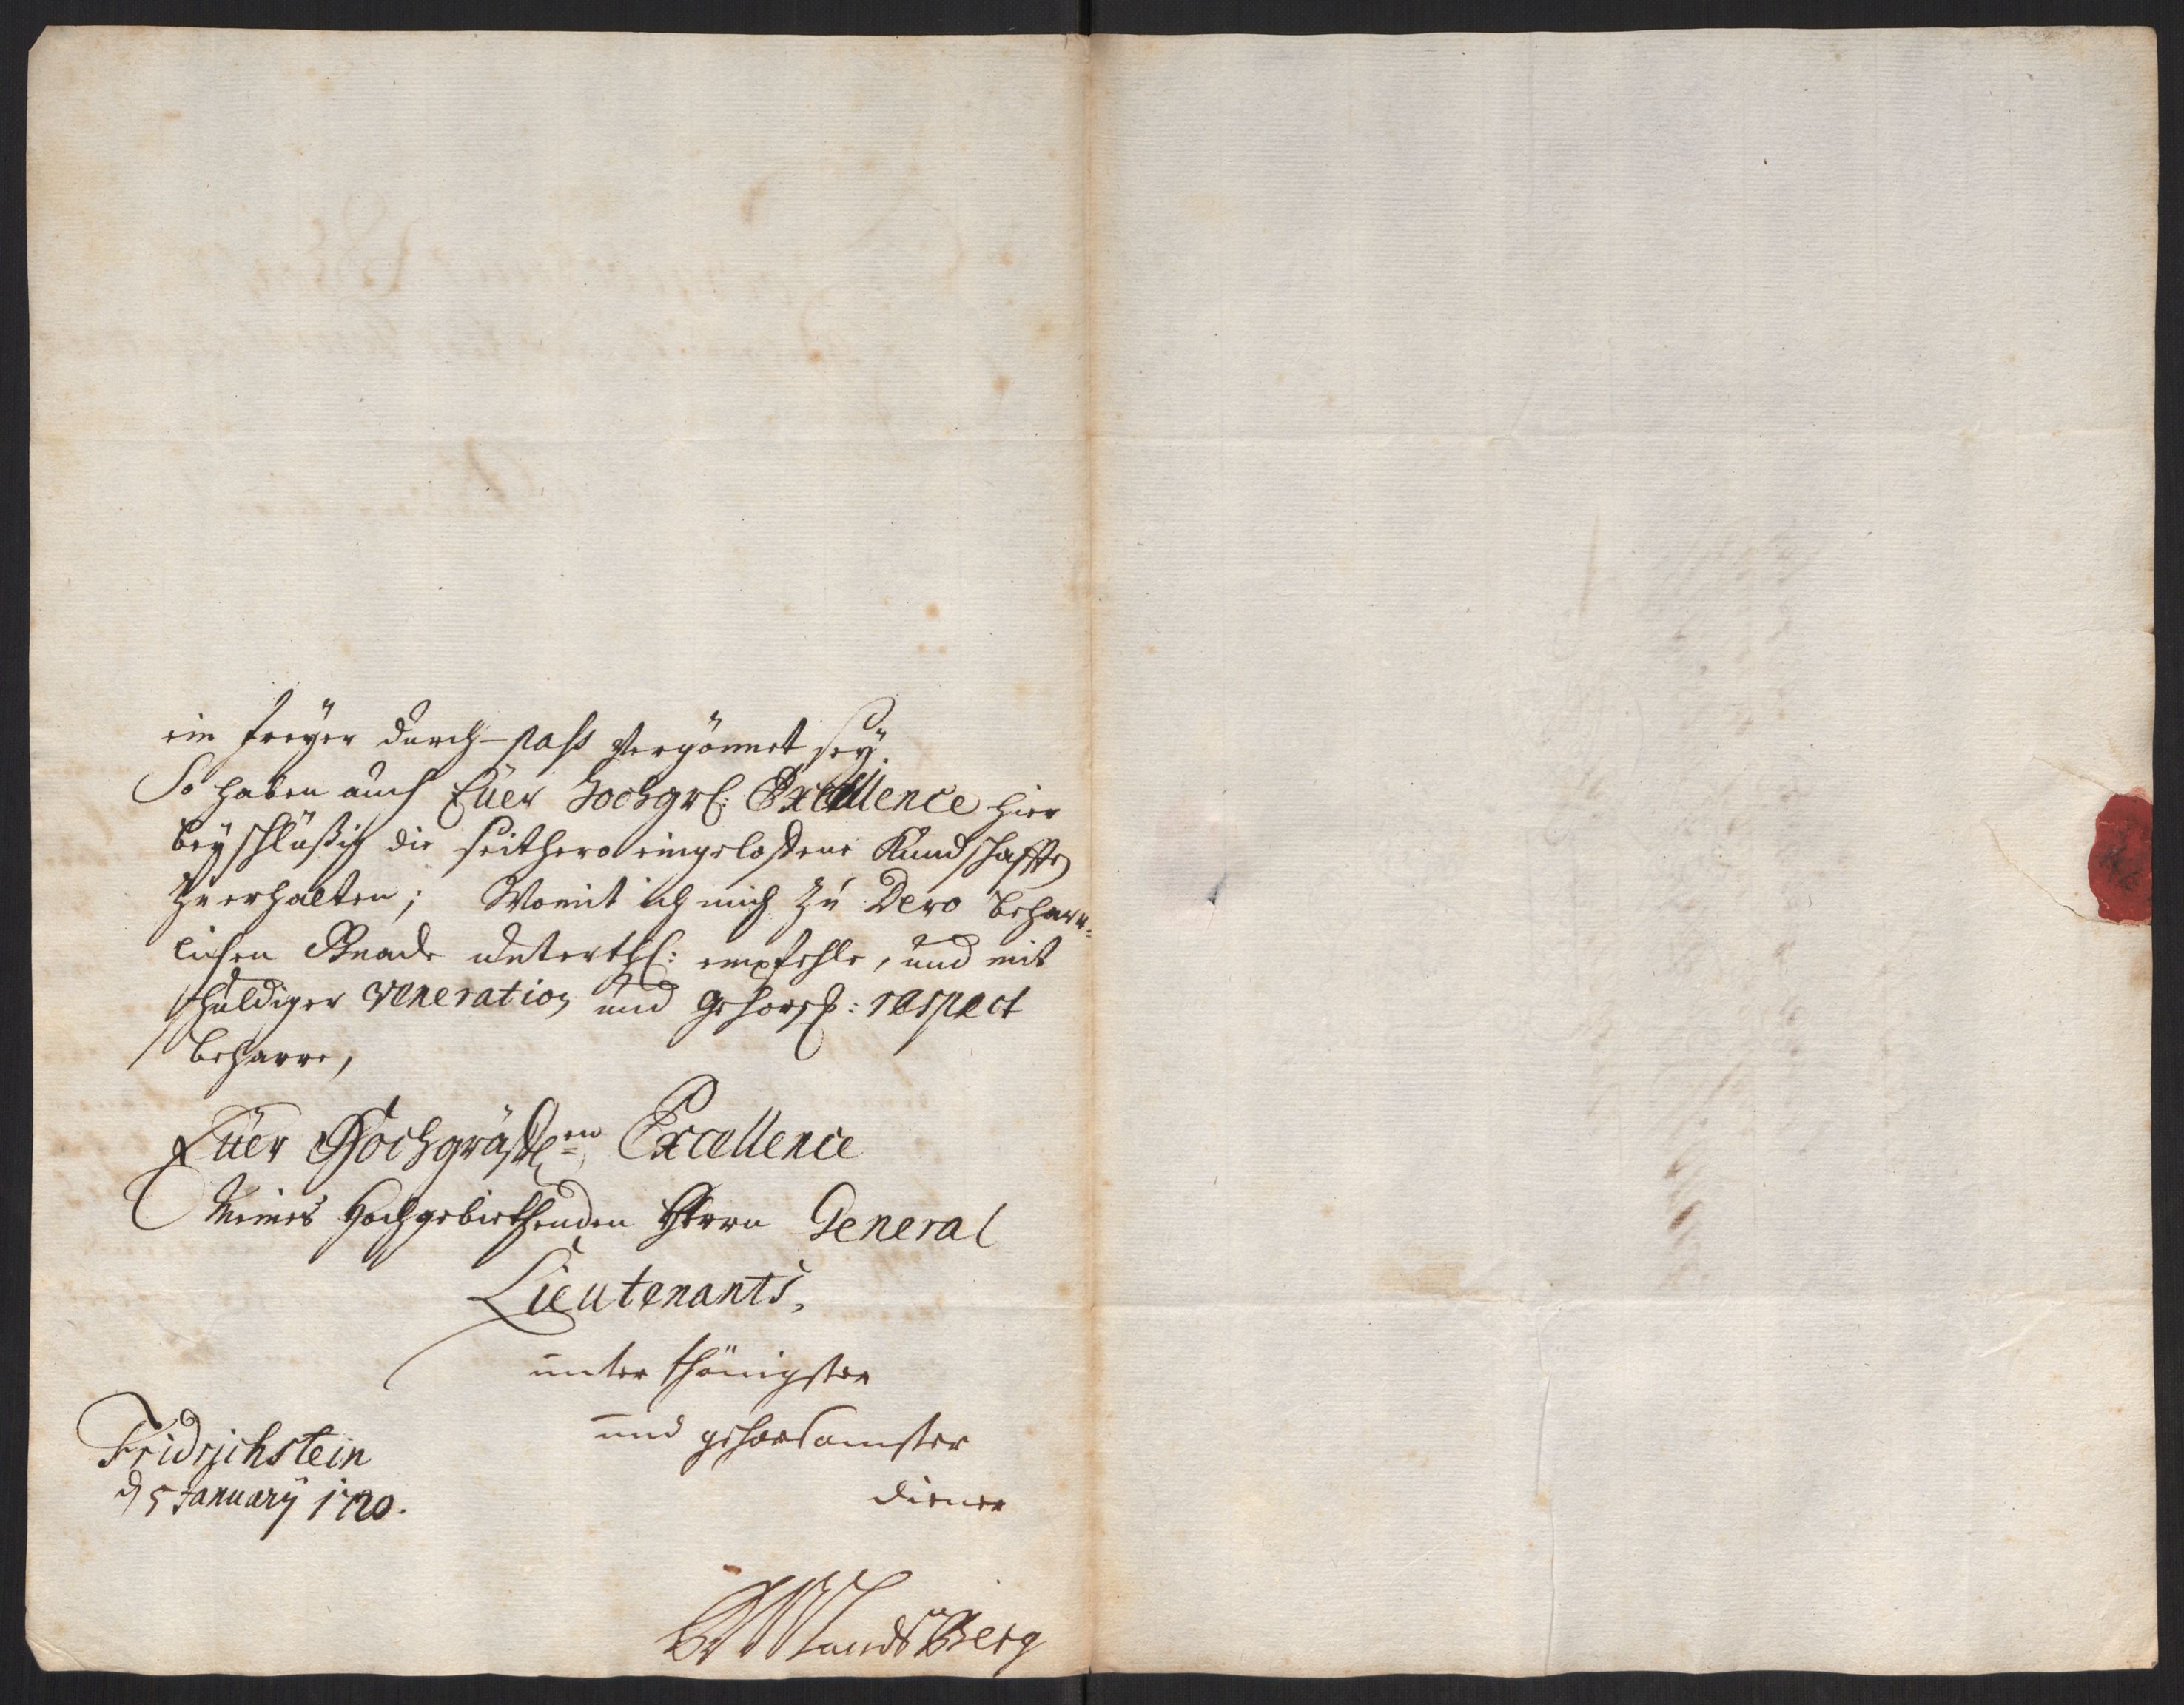 ein freyer durch-pass vergönnet seÿ.
So haben auch Euer Hochgrl: Excellence hier
beyschlüßig die seithero eingeloffene Kundschafften
zu erhalten; Womit ich mich zu Dero beharr-
lichen Gnade unterthl: empfehle, und mit
schuldiger veneration und gehorst: respect
beharre,
Euer Hochgräfflen Excellence
Meines Hochgebiethenden Herrn General
Lieutenants,
unterthänigster
und gehorsamster
diener
Fridrichstein
d 5 January 1720.
LandsBerg